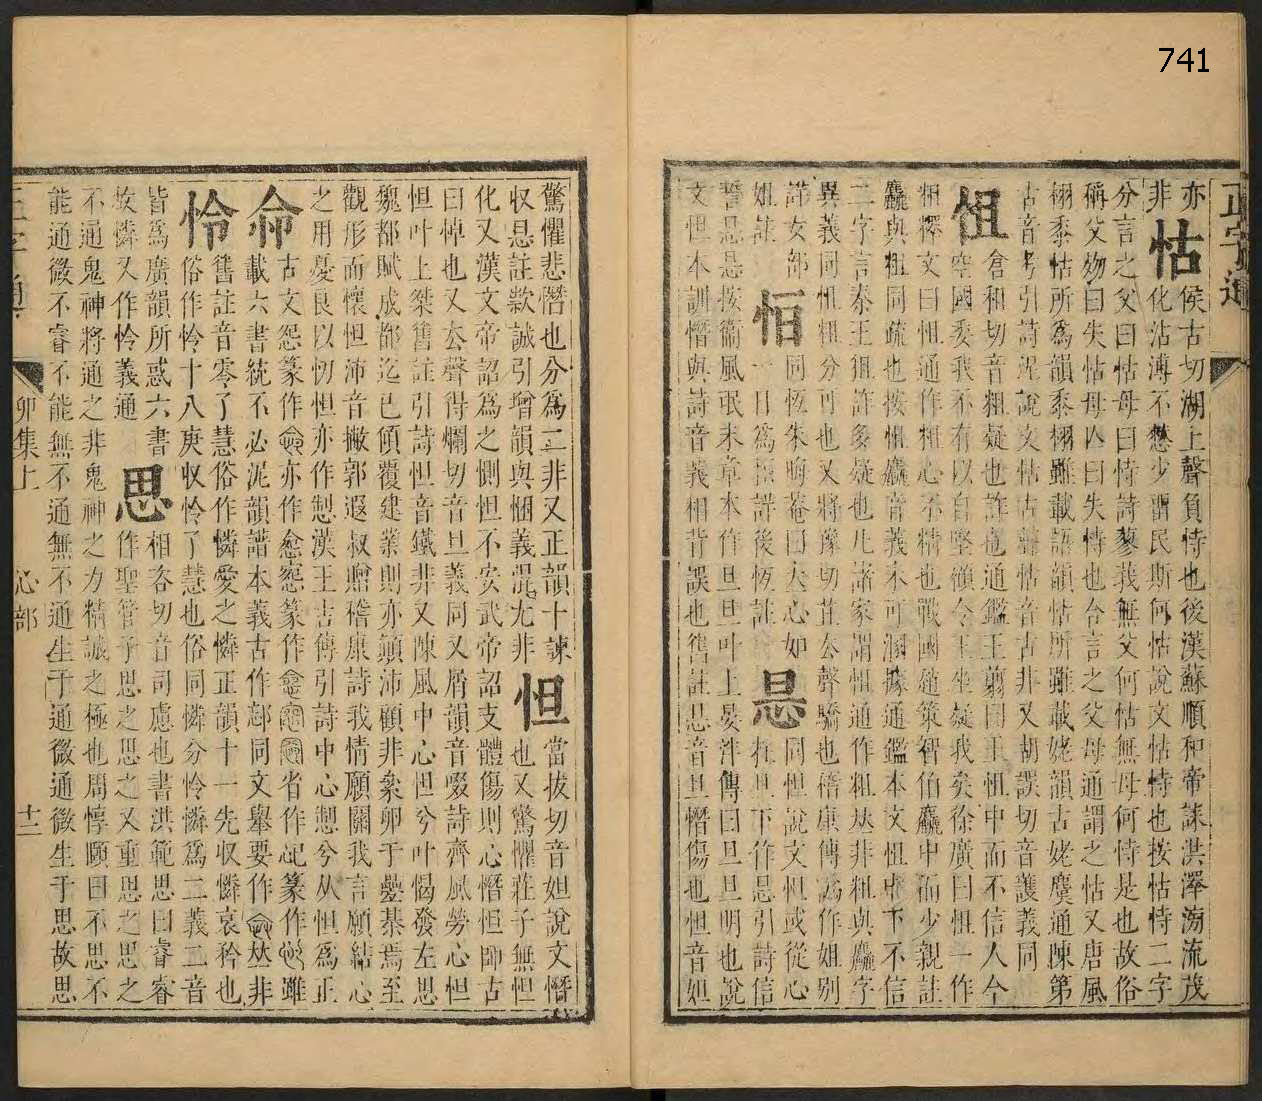 741
正字通
亦
非怙侯古切湖上聲負恃也後漢蘇順和帝誄洪澤滂流茂
化沾溥不憖少留民斯何怙說文怙恃也按怙恃二字
分言之父曰怙母曰恃詩蓼莪無父何怙無母何恃是也故俗
稱父歾曰失怙母亾曰失恃也合言之父母通謂之怙又唐風
栩黍怙所為韻黍栩雖載語韻怙所雖載姥韻古姥麌通陳第
古音考引詩泥說文怙古聲怙音古非又胡誤切音護義同
怚倉和切音粗疑也詐也通鑑王翦曰王怚中而不信人今
空國委我不有以自堅顧令王坐疑我矣徐廣曰怚一作
粗釋文曰怚通作粗心不精也戰國趙策智伯麤中而少親註
麤與粗同疏也按怚麤音義不可溷據通鑑本文怚中下不信
二字言秦王狙詐多疑也凡諸家謂怚通作粗𠀤非粗與麤字
異義同怚粗分可也又將豫切苴去聲驕也嵇康傳譌作姐別
詳女部 恒同恆朱晦菴曰大心如
一日為恆詳後恆註 㫜同怛說文怛或從心
在旦下作㫜引詩信
誓㫜㫜按衞風氓末章本作旦旦叶上晏泮傳曰旦旦明也說
文怛本訓憯與詩音義相背誤也舊註㫜音旦憯傷也怛音妲
驚懼悲憯也分為二非又正韻十諫
收㫜註款誠引增韻與悃義混尤非 怛當拔切音妲說文憯
也又驚懼莊子無怛
化又漢文帝詔為之惻怛不安武帝詔支體傷則心憯怛師古
曰悼也又去聲得爛切音旦義同又屑韻音啜詩齊風勞心怛
怛叶上桀舊註引詩怛音鐵非又陳風中心怛兮叶偈發左思
魏都賦成都迄已傾覆建業則亦顚沛顧非累卵于疊棊焉至
觀形而懷怛沛音撇郭遐叔贈嵇康詩我情願關我言願結心
之用憂良以忉怛亦作𢠵漢王吉傳引詩中心𢠵兮从怛為正
命古文怨篆作亦作惌篆作省作篆作雖
載六書統不必泥韻譜本義古作同文舉要作𠀤非
舊註音零了慧俗作憐愛之憐正韻十一先收憐哀矜也
怜俗作怜十八庚收怜了慧也俗同憐分怜憐為二義二音
皆為廣韻所惑六書
故憐又作怜義通 思相咨切音司慮也書洪範思曰睿睿
作聖管子思之思之又重思之思之
不通鬼神將通之非鬼神之力精誠之極也周惇頤曰不思不
能通微不睿不能無不通無不通生于通微通微生于思故思
正字通 卯集上 心部 十二